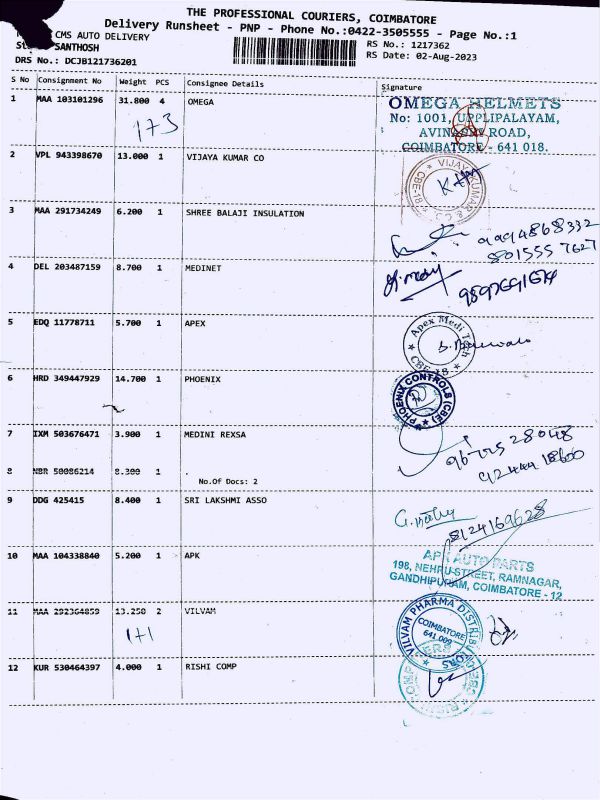 THE PROFESSIONAL COURIERS, COIMBATORE
Delivery Runsheet - PNP - Phone No.:0422-3505555 - Page No.:1
CMS AUTO DELIVERY
SANTHOSH
DRS No.: DCJB121736201
RS No.: 1217362
RS Date: 02-Aug-2023
S No Consignment No Weight PCS Consignee Details Signature
1 MAA 103101296 31.800 4 OMEGA
1+3
OMEGA HELMETS
No: 1001, UPPLIPALAYAM,
AVINASHI ROAD,
COIMBATORE - 641 018.
2 VPL 943398670 13.000 1 VIJAYA KUMAR CO
VIJAYA KUMAR & CO CBE-18
3 MAA 291734249 6.200 1 SHREE BALAJI INSULATION
9994868332
8015557627
4 DEL 203487159 8.700 1 MEDINET
5 EDQ 11778711 5.700 1 APEX
Apex Medi Tech
CBE-18
6 HRD 349447929 14.700 1 PHOENIX
PHOENIX CONTROLS (CBE)
7 IXM 503676471 3.900 1 MEDINI REXSA
8 NBR 50086214 8.300 1 .
No.Of Docs: 2
9 DDG 425415 8.400 1 SRI LAKSHMI ASSO
8124169628
10 MAA 104338840 5.200 1 APK
APK AUTO PARTS
198, NEHRU STREET, RAMNAGAR,
GANDHIPURAM, COIMBATORE - 12
11 MAA 292364859 13.250 2 VILVAM
1+1
VILVAM PHARMA DISTRIBUTORS
COIMBATORE
641 009
12 KUR 530464397 4.000 1 RISHI COMP